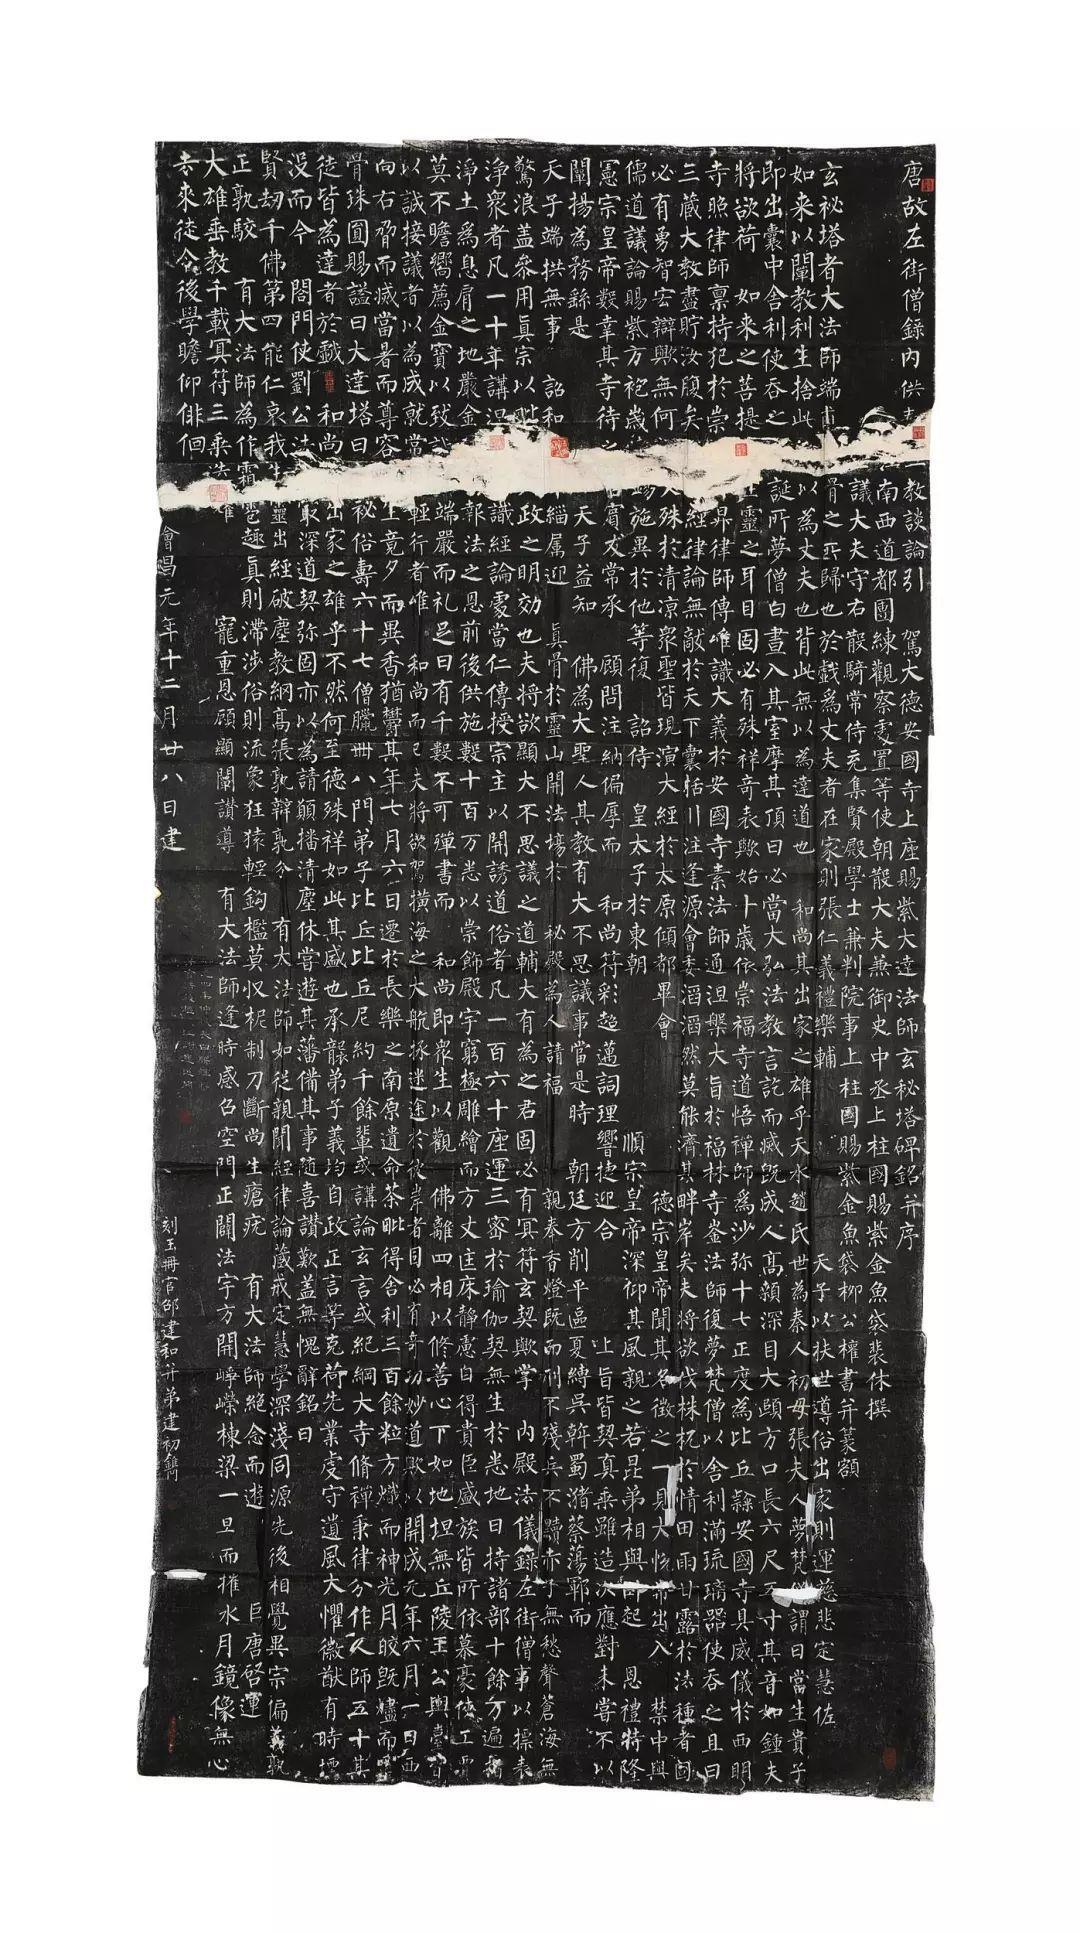 唐故左街僧錄內供 教談論引 駕大德安國寺上座賜紫大達法師玄秘塔碑銘并序
南西道都團練觀察處置等使朝散大夫兼御史中丞上柱國賜紫金魚袋裴休撰
議大夫守右散騎常侍充集賢殿學士兼判院事上柱國賜紫金魚袋柳公權書并篆額
玄秘塔者大法師端 骨之所歸也於戲為丈夫者在家則張仁義禮樂輔 天子以扶世導俗出家則運慈悲定慧佐
如来以闡教利生捨此 以為丈夫也背此無以為達道也 和尚其出家之雄乎天水趙氏世為秦人初母張夫人夢梵僧謂曰當生貴子
即出囊中舍利使吞之 誕所夢僧白晝入其室摩其頂曰必當大弘法教言訖而滅既成人高顙深目大頤方口長六尺五寸其音如鍾夫
將欲荷 如来之菩提 生靈之耳目固必有殊祥奇表歟始十歲依崇福寺道悟禪師為沙弥十七正度為比丘隸安國寺具威儀於西明
寺照律師稟持犯於崇 昇律師傳唯識大義於安國寺素法師通涅槃大旨於福林寺崟法師復夢梵僧以舍利滿琉璃器使吞之且曰
三藏大教盡貯汝腹矣 經律論無敵於天下囊括川注逢源會委滔滔然莫能濟其畔岸矣夫將欲伐株杌於情田雨甘露於法種者固
必有勇智宏辯歟無何 殊於清凉衆聖皆現演大經於太原傾都畢會 德宗皇帝聞其名徵之一見大悅常出入 禁中與
儒道議論賜紫方袍歲 施異於他等復 詔侍 皇太子於東朝 順宗皇帝深仰其風親之若昆弟相與卧起 恩禮特隆
憲宗皇帝數幸其寺待之 賓友常承 顧問注納偏厚而 和尚符彩超邁詞理響捷迎合 上旨皆契真乘雖造次應對未嘗不以
闡揚為務繇是 天子益知 佛為大聖人其教有大不思議事當是時 朝廷方削平區夏縛吳斡蜀潴蔡蕩鄆而
天子端拱無事 詔和 緇属迎 真骨於靈山開法場於 秘殿為人請福 親奉香燈既而刑不殘兵不黷赤子無愁聲蒼海無
驚浪蓋參用真宗以毗 政之明効也夫將欲顯大不思議之道輔大有為之君固必有冥符玄契歟掌 內殿法儀錄左街僧事以摽表
淨衆者凡一十年講涅 識經論處當仁傳授宗主以開誘道俗者凡一百六十座運三密於瑜伽契無生於悉地日持諸部十餘万遍指
淨土為息肩之地嚴金 報法之恩前後供施數十百万悉以崇飾殿宇窮極雕繪而方丈匡床靜慮自得貴臣盛族皆所依慕豪俠工賈
莫不瞻嚮薦金寶以致誠 端嚴而礼足日有千數不可殫書而 和尚即衆生以觀 佛離四相以修善心下如地坦無丘陵王公輿臺皆
以誠接議者以為成就常 輕行者唯 和尚而已夫將欲駕橫海之大航拯迷途於彼岸者固必有奇功妙道歟以開成元年六月一日西
向右脅而滅當暑而尊容 生竟夕而異香猶鬱其年七月六日遷於長樂之南原遺命荼毗得舍利三百餘粒方熾而神光月皎既燼而靈
骨珠圓賜謚曰大達塔曰 秘俗壽六十七僧臘卌八門弟子比丘比丘尼約千餘輩或講論玄言或紀綱大寺脩禪秉律分作人師五十其
徒皆為達者於戲 和尚 出家之雄乎不然何至德殊祥如此其盛也承襲弟子義均自政正言等克荷先業虔守遺風大懼徽猷有時堙
没而今 閤門使劉公法 取深道契弥固亦以為請願播清塵休嘗遊其藩備其事隨喜讚歎盖無愧辭銘曰
賢劫千佛第四能仁哀我生靈出經破塵教綱高張孰辯孰分 有大法師如從親聞經律論藏戒定慧學深淺同源先後相覺異宗偏義孰
正孰駮 有大法師為作霜雹趣真則滯涉俗則流象狂猿輕鈎檻莫收柅制刀斷尚生瘡疣 有大法師絕念而遊 巨唐啓運
大雄垂教千載冥符三乘迭 寵重恩顧顯 闡讚導 有大法師逢時感召空門正闢法宇方開崢嶸棟梁一旦而摧水月鏡像無心
去來徒令後學瞻仰俳佪
會昌元年十二月廿八日建
刻玉冊官邵建和并弟建初鐫